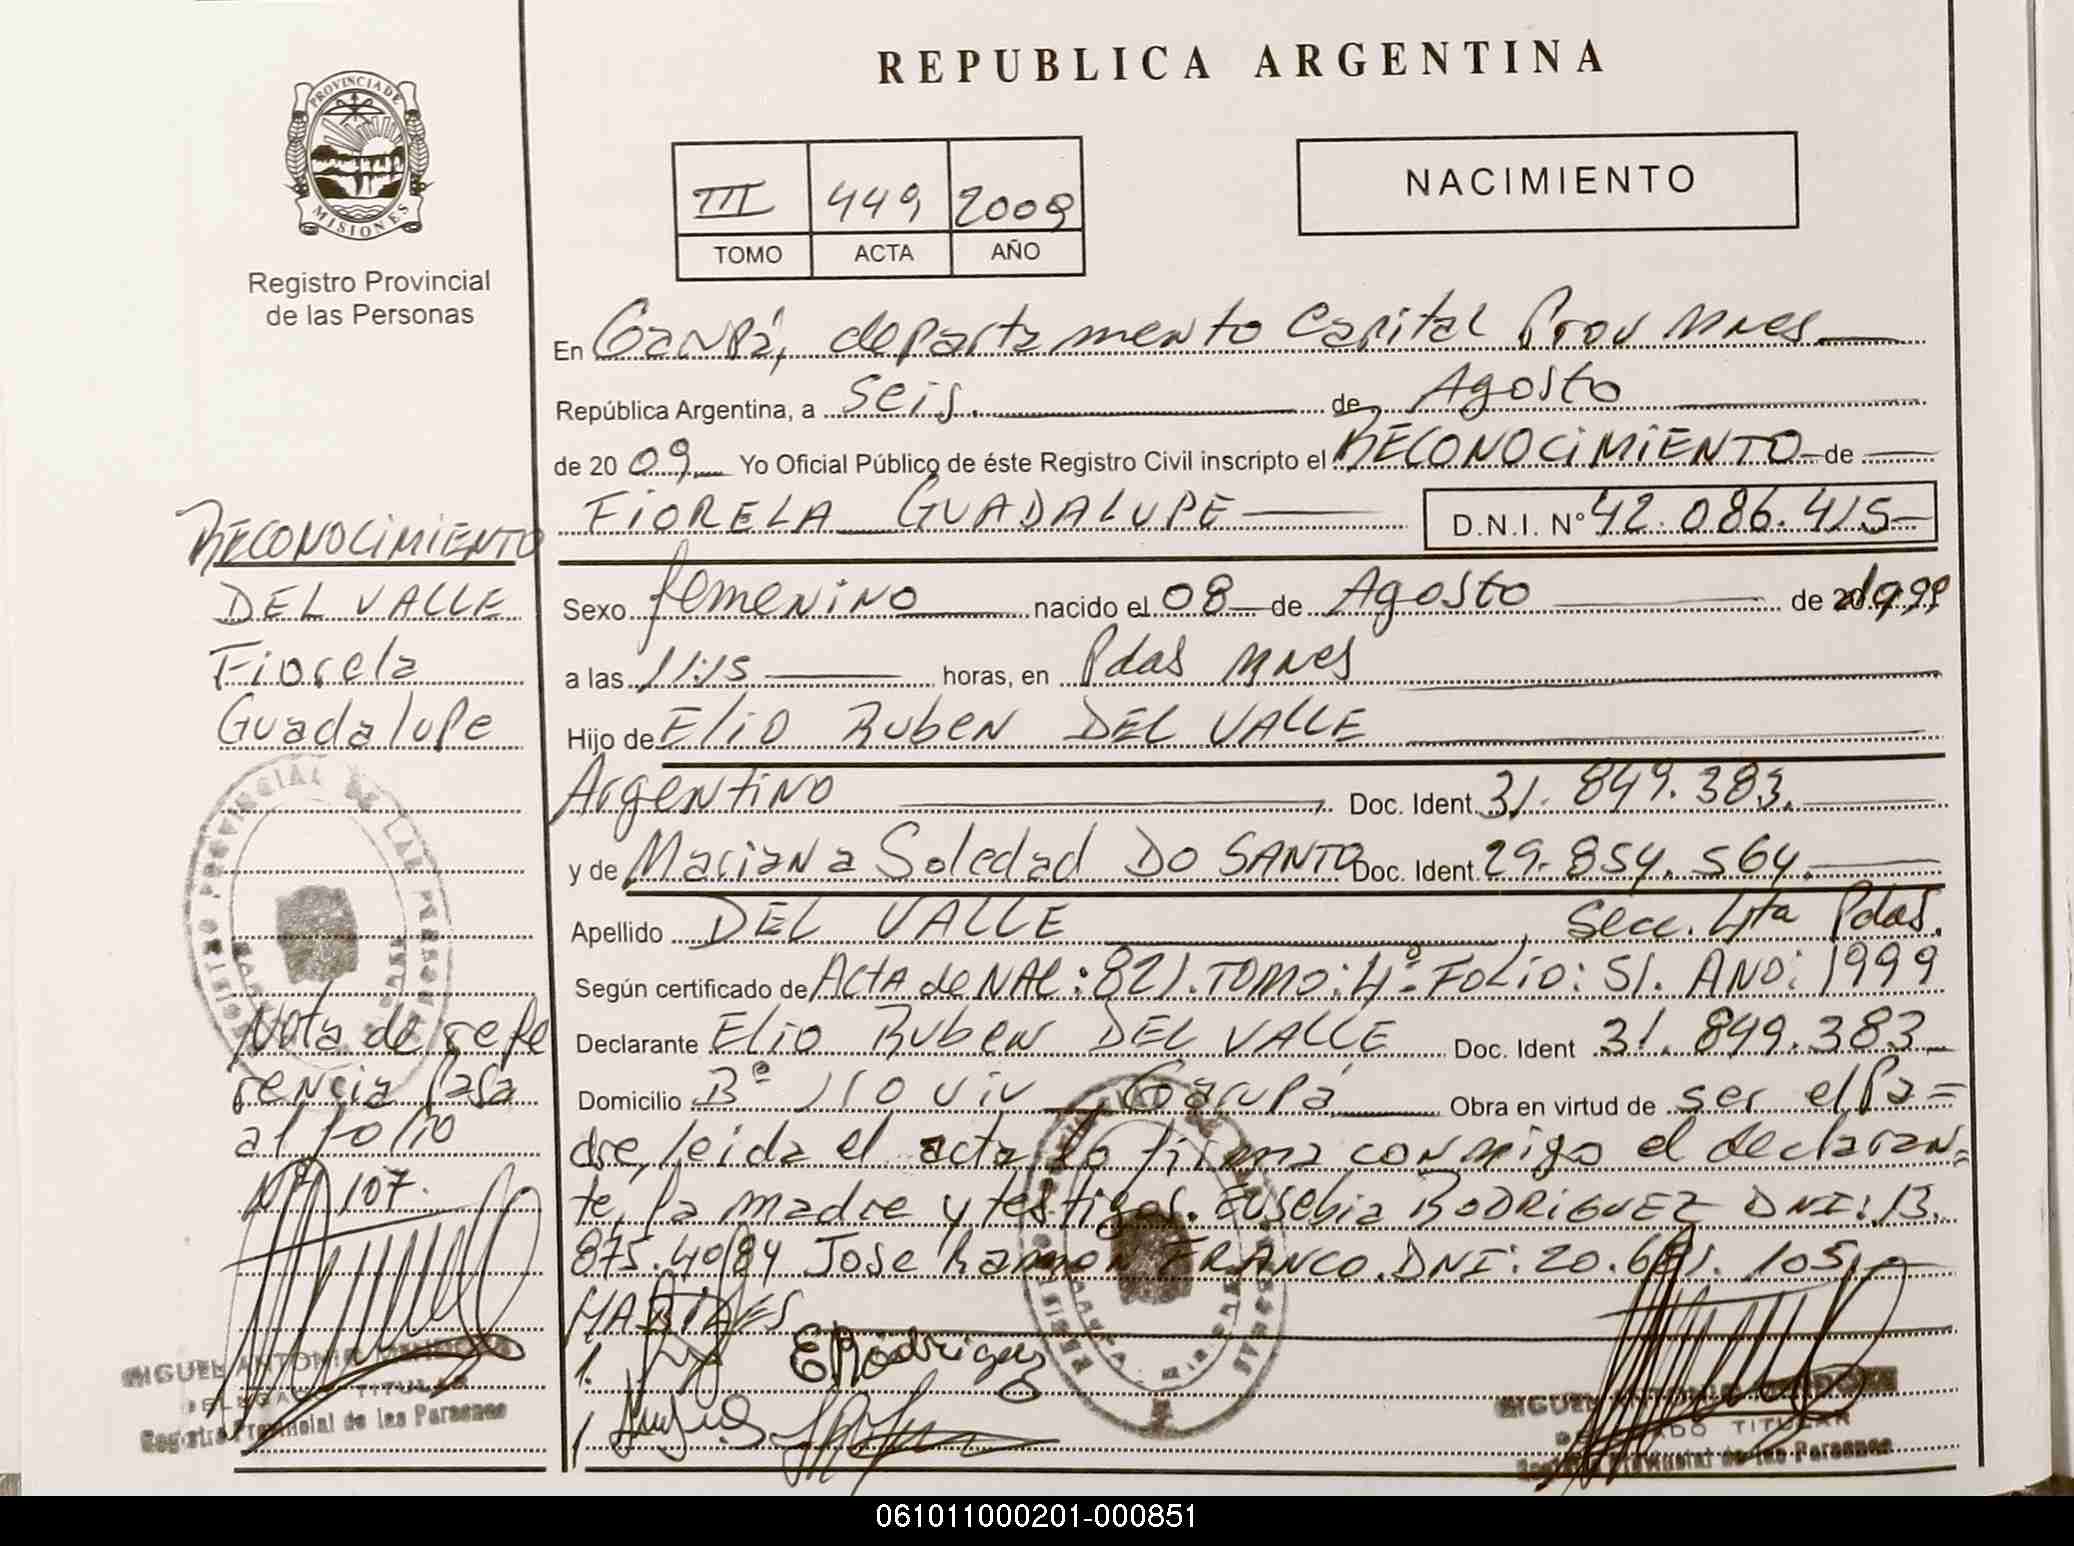 REPUBLICA ARGENTINA
PROVINCIA DE
MISIONES
Registro Provincial
de las Personas
III 449 2009
TOMO ACTA AÑO
NACIMIENTO
En Garupá, departamento Capital Prov Mnes
República Argentina, a seis. de Agosto
de 20 09 Yo Oficial Público de éste Registro Civil inscripto el RECONOCIMIENTO de
FIORELA GUADALUPE D.N.I. Nº 42.086.415
Sexo femenino nacido el 08 de Agosto de 1999
a las 11:15 horas, en Pdas Mnes
Hijo de Elio Ruben DEL VALLE
Argentino Doc. Ident. 31.849.383.
y de Mariana Soledad DO SANTO Doc. Ident. 29.854.564.
Apellido DEL VALLE, Secc. 4ta Pdas.
Según certificado de Acta de NAC: 821. TOMO: 4º FOLIO: 51. ANO: 1999
Declarante Elio Ruben DEL VALLE Doc. Ident 31.849.383
Domicilio Bº 110 viv Garupá Obra en virtud de ser el Pa=
dre, leida el acta la firma conmigo el declaran=
te, la madre y testigos. Eusebia RODRIGUEZ DNI: 13.
Jose Ramon FRANCO. DNI: 105
RECONOCIMIENTO
DEL VALLE
Fiorela
Guadalupe
Nota de refe
rencia Pasa
al folio
Nº 107.
ERodriguez
MIGUEL ANTONIO
DELEGADO TITULAR
Registro Provincial de las Personas
MIGUEL ANTONIO
DELEGADO TITULAR
Registro Provincial de las Personas
061011000201-000851